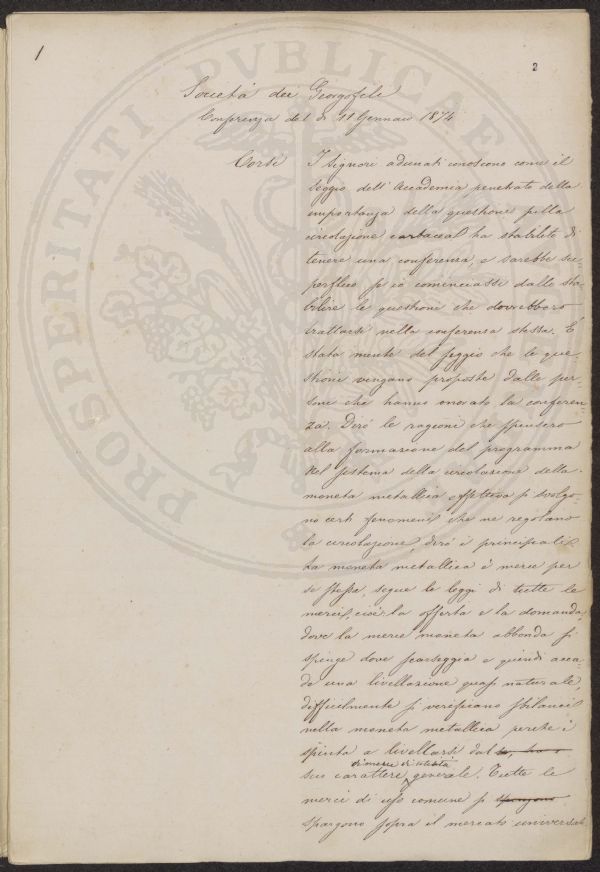 1
2
PROSPERITATI PVBLICAE
Società dei Georgofili
Conferenza del dì 11 Gennaio 1874
Corsi I Signori adunati conoscono come il
seggio dell'Accademia penetrato della
importanza della questione sulla
circolazione cartacea ha stabilito di
tenere una conferenza, e sarebbe su-
perfluo se io cominciassi dallo sta-
bilire le questioni che dovrebbero
trattarsi nella conferenza stessa. È
stata mente del seggio che le que-
stioni vengano proposte dalle per-
sone che hanno onorato la conferen-
za. Dirò le ragioni che spinsero
alla formazione del programma
Nel sistema della circolazione della
moneta metallica effettiva si svolgo-
no certi fenomeni che ne regolano
la circolazione, dirò i principali.
La moneta metallica è merce per
se stessa, segue le leggi di tutte le
merci, cioè: la offerta e la domanda,
dove la merce moneta abbonda si
spinge dove scarseggia e quindi acca-
de una livellazione quasi naturale,
difficilmente si verificano sbilanci
nella moneta metallica perchè è
spinta a livellarsi dal
di merce di utilità
suo carattere generale. Tutte le
merci di uso comune si spargono
spargono sopra il mercato universale